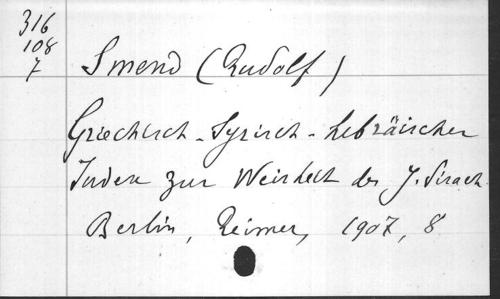 316
108
7
Smend (Rudolf)
Griechisch-Syrisch-hebräischer
Index zur Weisheit des J. Sirach
Berlin, Reimer, 1907, 8